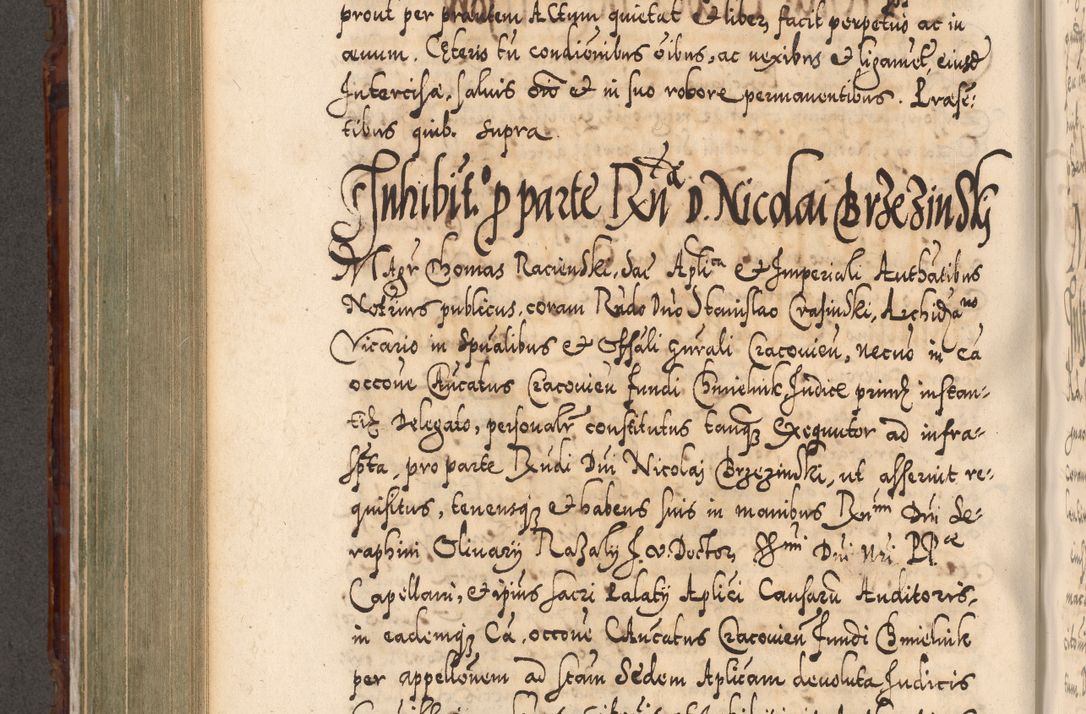 prout per praesentem Actum quietat et liber facit perpetuo ac in
aeuum. Ceteris tn condicionibus oibus, ac nexibus et ligamet, eiusd
Intercisae, saluis oio et in suo robore permanentibus. Praesē-
tibus quib. supra
Inhibit.o p parte Rndi D. Nicolai Brzezinskj
Magr Thomas Racienski, Sac Aplica et Imperiali Authatibus
Notrius publicus, coram Rndo Dno Stanislao Crasinski, Archidia no
Vicario in Spualibus et Offāli gnrali Cracouien, necno in Ca
occone Ducatus Cracouien fundi Chmielnik Judice prim instan-
ti Delegato, personalr constitutus tanq Exequutor ad infra-
spta, pro parte Rndi Dni Nicolai Brzezinski, ut asseruit re-
quisitus, tenensq et habens suis in manibus Rmi Dni Se-
raphini Oliuarij Razalij J. V. Doctor SSmi Dni Nri PP ae
Capellani, et ipius sacri Palatij Aplici Causaru Auditoris,
in eademq Ca, occone Ducatus Cracouien fundi Chmielnik
per appellonem ad stam Sedem Aplicam deuoluta Judicis